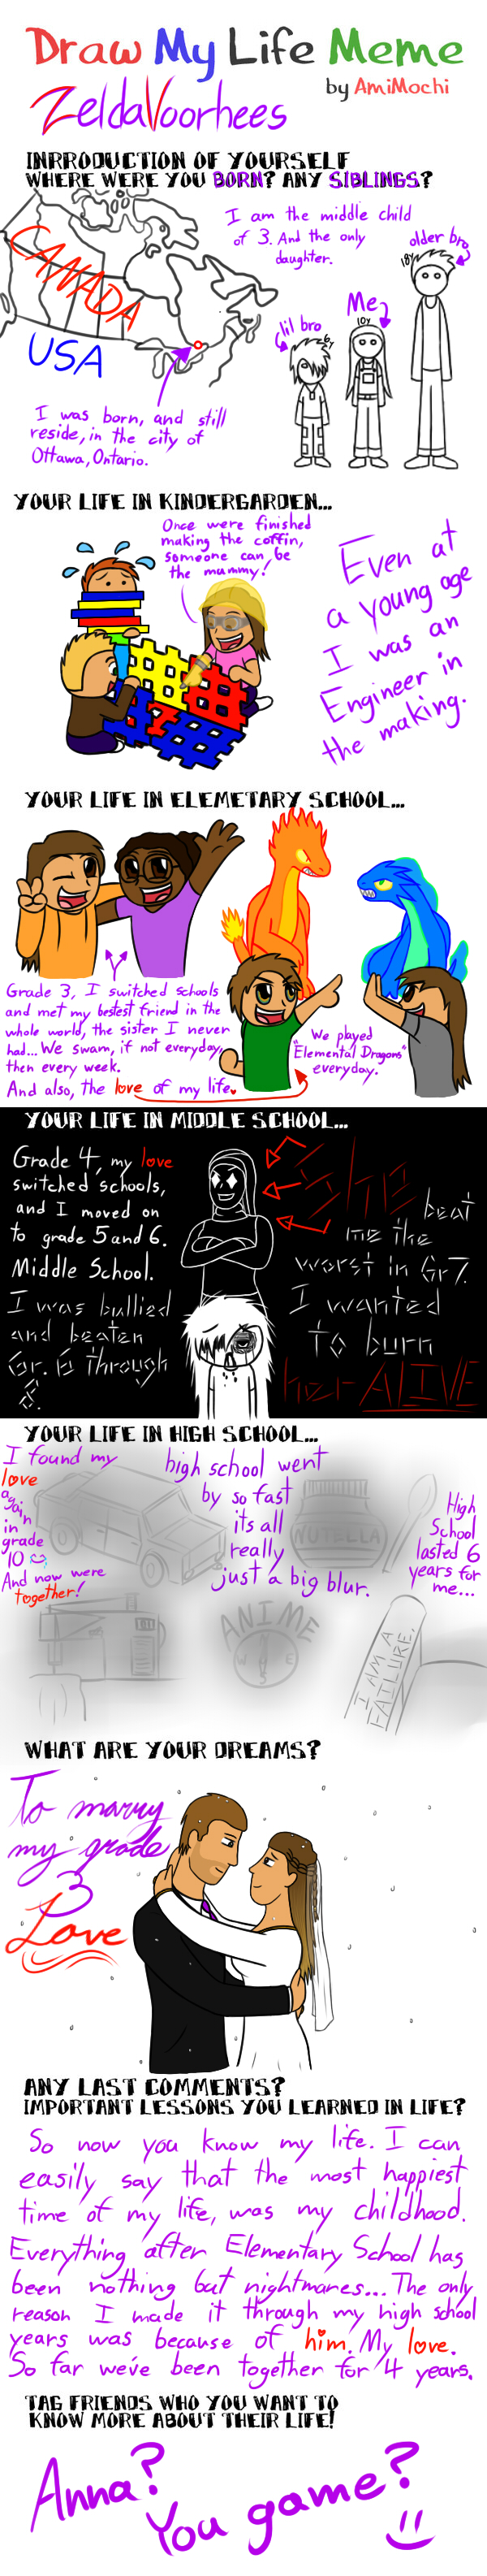 Draw My Life Meme
by AmiMochi
ZeldaVoorhees
INRRODUCTION OF YOURSELF
WHERE WERE YOU BORN? ANY SIBLINGS?
CANADA
USA
I am the middle child
of 3. And the only
daughter.
older bro
18y
Me
10y
lil bro
6y
I was born, and still
reside, in the city of
Ottawa, Ontario.
YOUR LIFE IN KINDERGARDEN...
Once were finished
making the coffin,
someone can be
the mummy!
Even at
a young age
I was an
Engineer in
the making.
YOUR LIFE IN ELEMETARY SCHOOL...
Grade 3, I switched schools
and met my bestest friend in the
whole world, the sister I never
had... We swam, if not everyday,
then every week.
And also, the love of my life.
We played
"Elemental Dragons"
everyday.
YOUR LIFE IN MIDDLE SCHOOL...
Grade 4, my love
switched schools,
and I moved on
to grade 5 and 6.
Middle School.
I was bullied
and beaten
Gr. 6 through
8.
She beat
me the
worst in Gr 7.
I wanted
to burn
her ALIVE
YOUR LIFE IN HIGH SCHOOL...
I found my
love
again
in
grade
10
And now were
together!
high school went
by so fast
its all
really
just a big blur.
NUTELLA
High
School
lasted 6
years for
me...
ANIME
W
E
S
I AM A
FAILURE.
WHAT ARE YOUR DREAMS?
To marry
my grade
3
Love
ANY LAST COMMENTS?
IMPORTANT LESSONS YOU LEARNED IN LIFE?
So now you know my life. I can
easily say that the most happiest
time of my life, was my childhood.
Everything after Elementary School has
been nothing but nightmares... The only
reason I made it through my high school
years was because of him. My love.
So far we've been together for 4 years.
TAG FRIENDS WHO YOU WANT TO
KNOW MORE ABOUT THEIR LIFE!
Anna?
You game?
=)